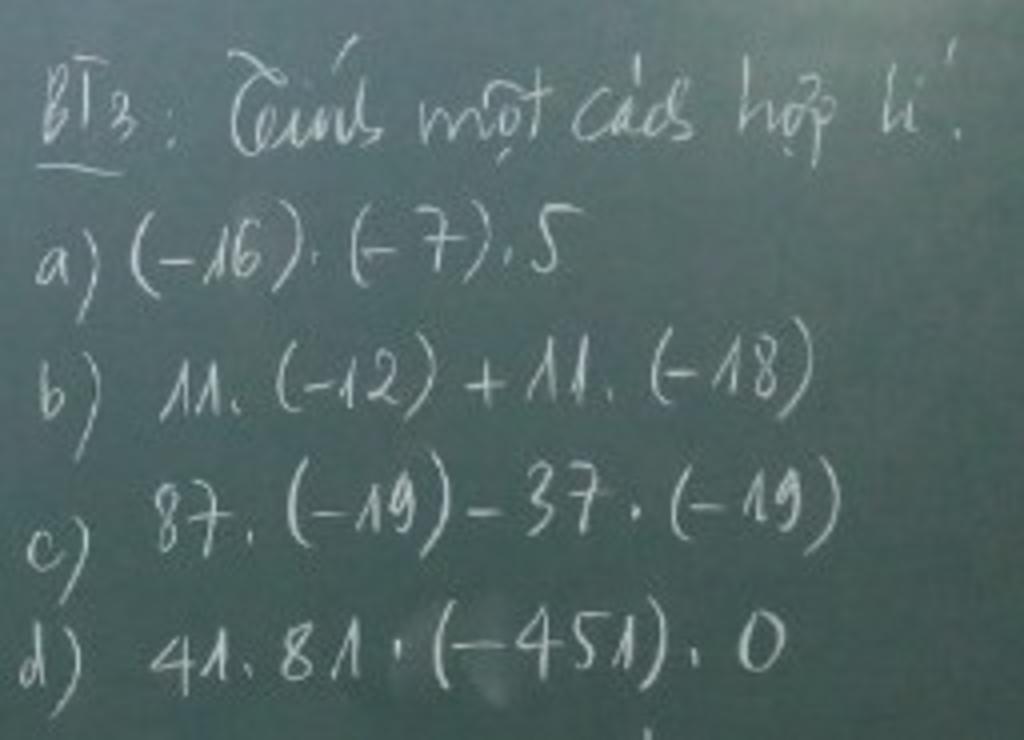 BT3: Tính một cách hợp lí.
a) (-16). (-7). 5
b) 11. (-12) + 11. (-18)
c) 87. (-19) - 37. (-19)
d) 41. 81. (-451). 0